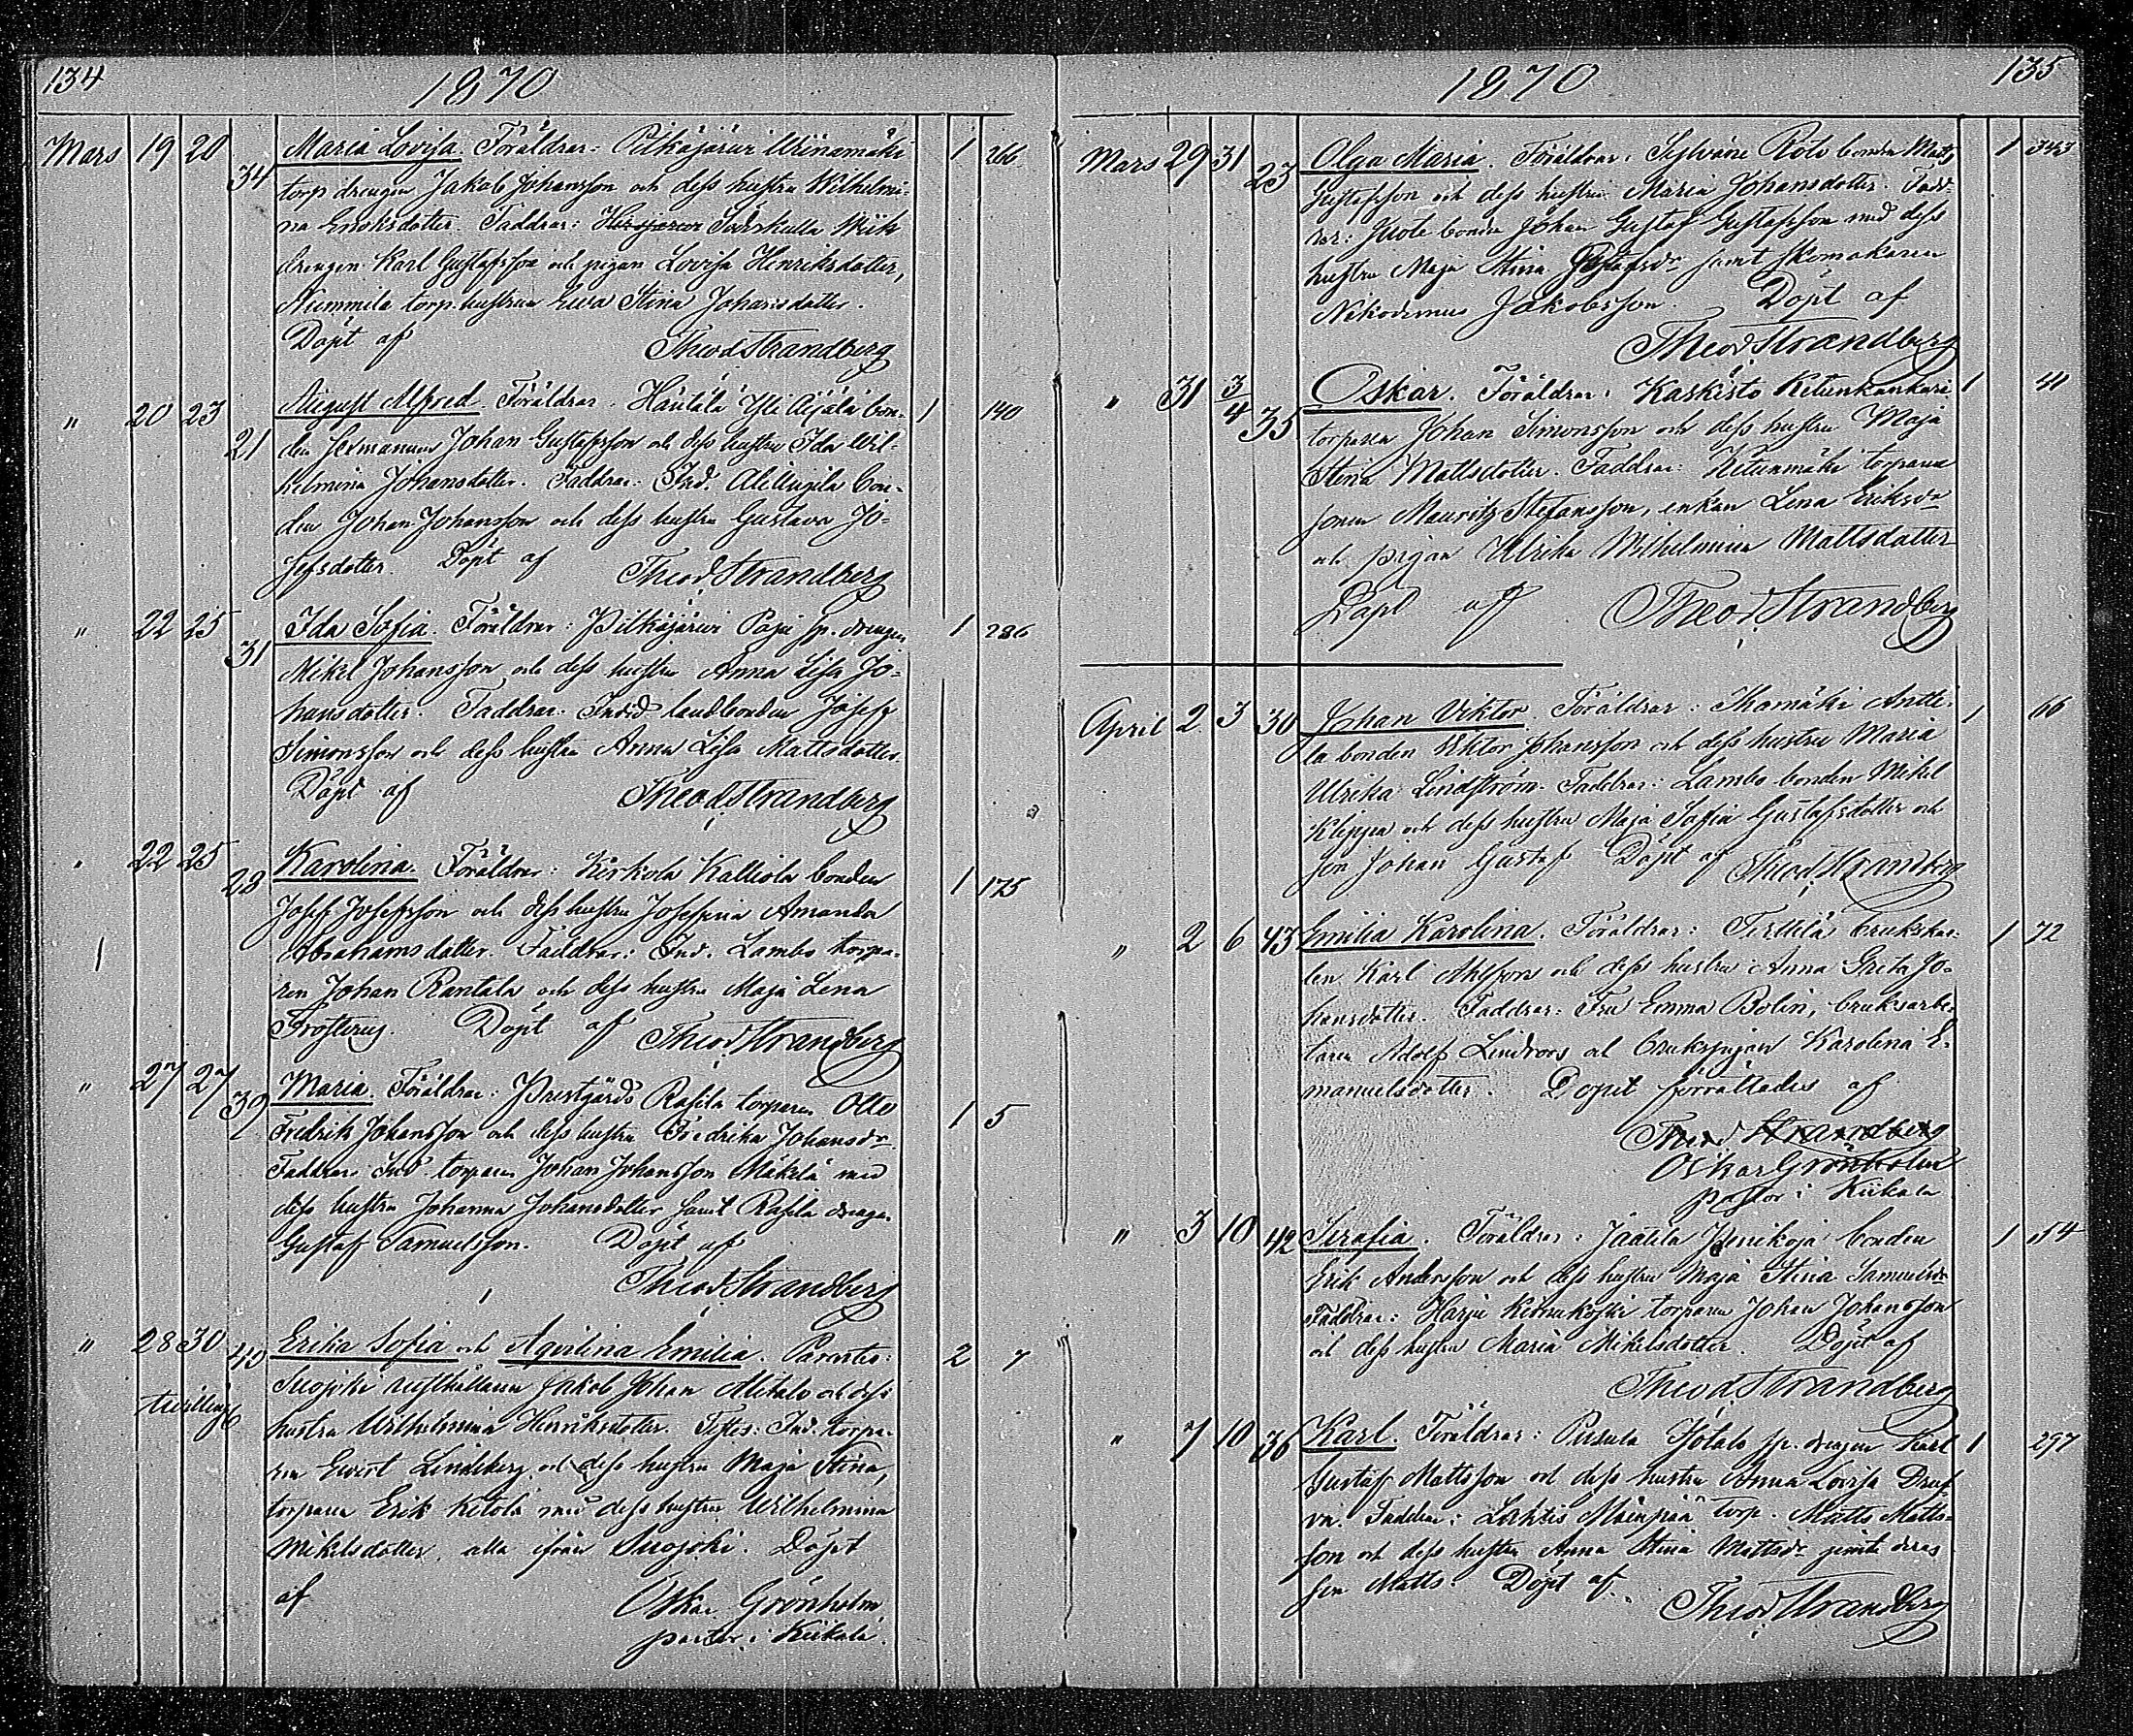 134
1870
Mars 19 20 34 Maria Lovisa. Föräldrar: Pitkäjärvi Urinamäki 1 266
torp drengen Jakob Johansson och dess hustru Wilhelmi-
na Enoksdotter. Faddrar: Söderkulla
drengen Karl Gustafsson och pigan Lovisa Henriksdotter,
Nummila torp. hustrun Eva Stina Johansdotter.
Döpt af Theod Strandberg
" 20 23 21 August Alfred. Föräldrar: Häntälä Yli Äijälä bon- 1 140
den Hermanus Johan Gustafsson och dess hustru Ida Wil-
helmina Johansdotter. Faddrar: Ind. bon-
den Johan Johansson och dess hustru Gustava Jo-
sefsdotter. Döpt af Theod Strandberg
" 22 25 31 Ida Sofia. Föräldrar: Pitkäjärvi Paja sp. drengen 1 286
Mikel Johansson och dess hustru Anna Lisa Jo-
hansdotter. Faddrar: Ind. landbonden Josef
Simonsson och dess hustru Anna Lisa Mattsdotter.
Döpt af Theod Strandberg
" 22 25 28 Karolina. Föräldrar: Kerkola Kalliola bonden 1 175
Josef Josefsson och dess hustru Josefina Amanda
Abrahamsdotter. Faddrar: Ind. Lambo torpa-
ren Johan Rantala och dess hustru Maja Lena
Frosterus. Döpt af Theod Strandberg
" 27 27 39 Maria. Föräldrar: Prestgårds Rasila torparen Otto 1 5
Fredrik Johansson och dess hustru Fredrika Johansdr
Faddrar: Ind torparen Johan Johansson Mäkelä med
dess hustru Johanna Johansdotter samt Rasila drengen
Gustaf Samuelsson. Döpt af
Theod Strandberg
" 28 30 40 Erika Sofia och Aqvilina Emilia. Parentes: 2 7
tvillingar
Suojoki rusthållaren Jakob Johan Alitalo och dess
hustru Wilhelmina Henriksdotter. Testes: Ind. torpa-
ren Evert Lindeberg och dess hustru Maja Stina,
torparen Erik Ketola med dess hustru Wilhelmina
Mikelsdotter, alla ifrån Suojoki. Döpt
af Oskar Grönholm
pastor i Kiikala.
1870
135
Mars 29 31 23 Olga Maria. Föräldrar: Sylväne Roto bonden Matts 1 343
Gustafsson och dess hustru Maria Johansdotter. Fadd-
rar: bonden Johan Gustaf Gustafsson med dess
hustru Maja Stina Gustafsdr samt skomakaren
Nikodemus Jakobsson. Döpt af
Theod Strandberg
" 31 3/4 35 Oskar. Föräldrar: Kaskisto Ketunkankari 1 41
torparen Johan Simonsson och dess hustru Maja
Stina Mattsdotter. Faddrar: Ketunmäki torpare
sonen Mauritz Stefansson, enkan Lena Eriksdr
och pigan Ulrika Wilhelmina Mattsdotter
Döpt af Theod Strandberg
April 2 3 30 Johan Viktor. Föräldrar: Ihamäki Antti- 1 66
la bonden Viktor Johansson och dess hustru Maria
Ulrika Lindström. Faddrar: Lambo bonden Mikel
och dess hustru Maja Sofia Gustafsdotter och
son Johan Gustaf. Döpt af Theod Strandberg
" 2 6 43 Emilia Karolina. Föräldrar: Terttilä brukskar- 1 72
len Karl Ahlsson och dess hustru Anna Greta Jo-
hansdotter. Faddrar: Fru Emma Bolin, bruksarbe-
taren Adolf Lindroos och brukspigan Karolina E-
manuelsdotter. Dopet förrättades af
Theod Strandberg
Oskar Grönholm
pastor i Kiikala
" 3 10 42 Serafia. Föräldrar: Jaatila Penikoja bonden 1 154
Erik Andersson och dess hustru Maja Stina Samuelsdr
Faddrar: Harju torparen Johan Johansson
och dess hustru Maria Mikelsdotter. Döpt af
Theod Strandberg
" 7 10 36 Karl. Föräldrar: Pirsula sp. drengen Karl 1 297
Gustaf Mattsson och dess hustru Anna Lovisa Druf-
va. Faddrar: Lahtis Mäenpää torp. Matts Matts-
son och dess hustru Anna Stina Mattsdr jemte deras
son Matts. Döpt af
Theod Strandberg